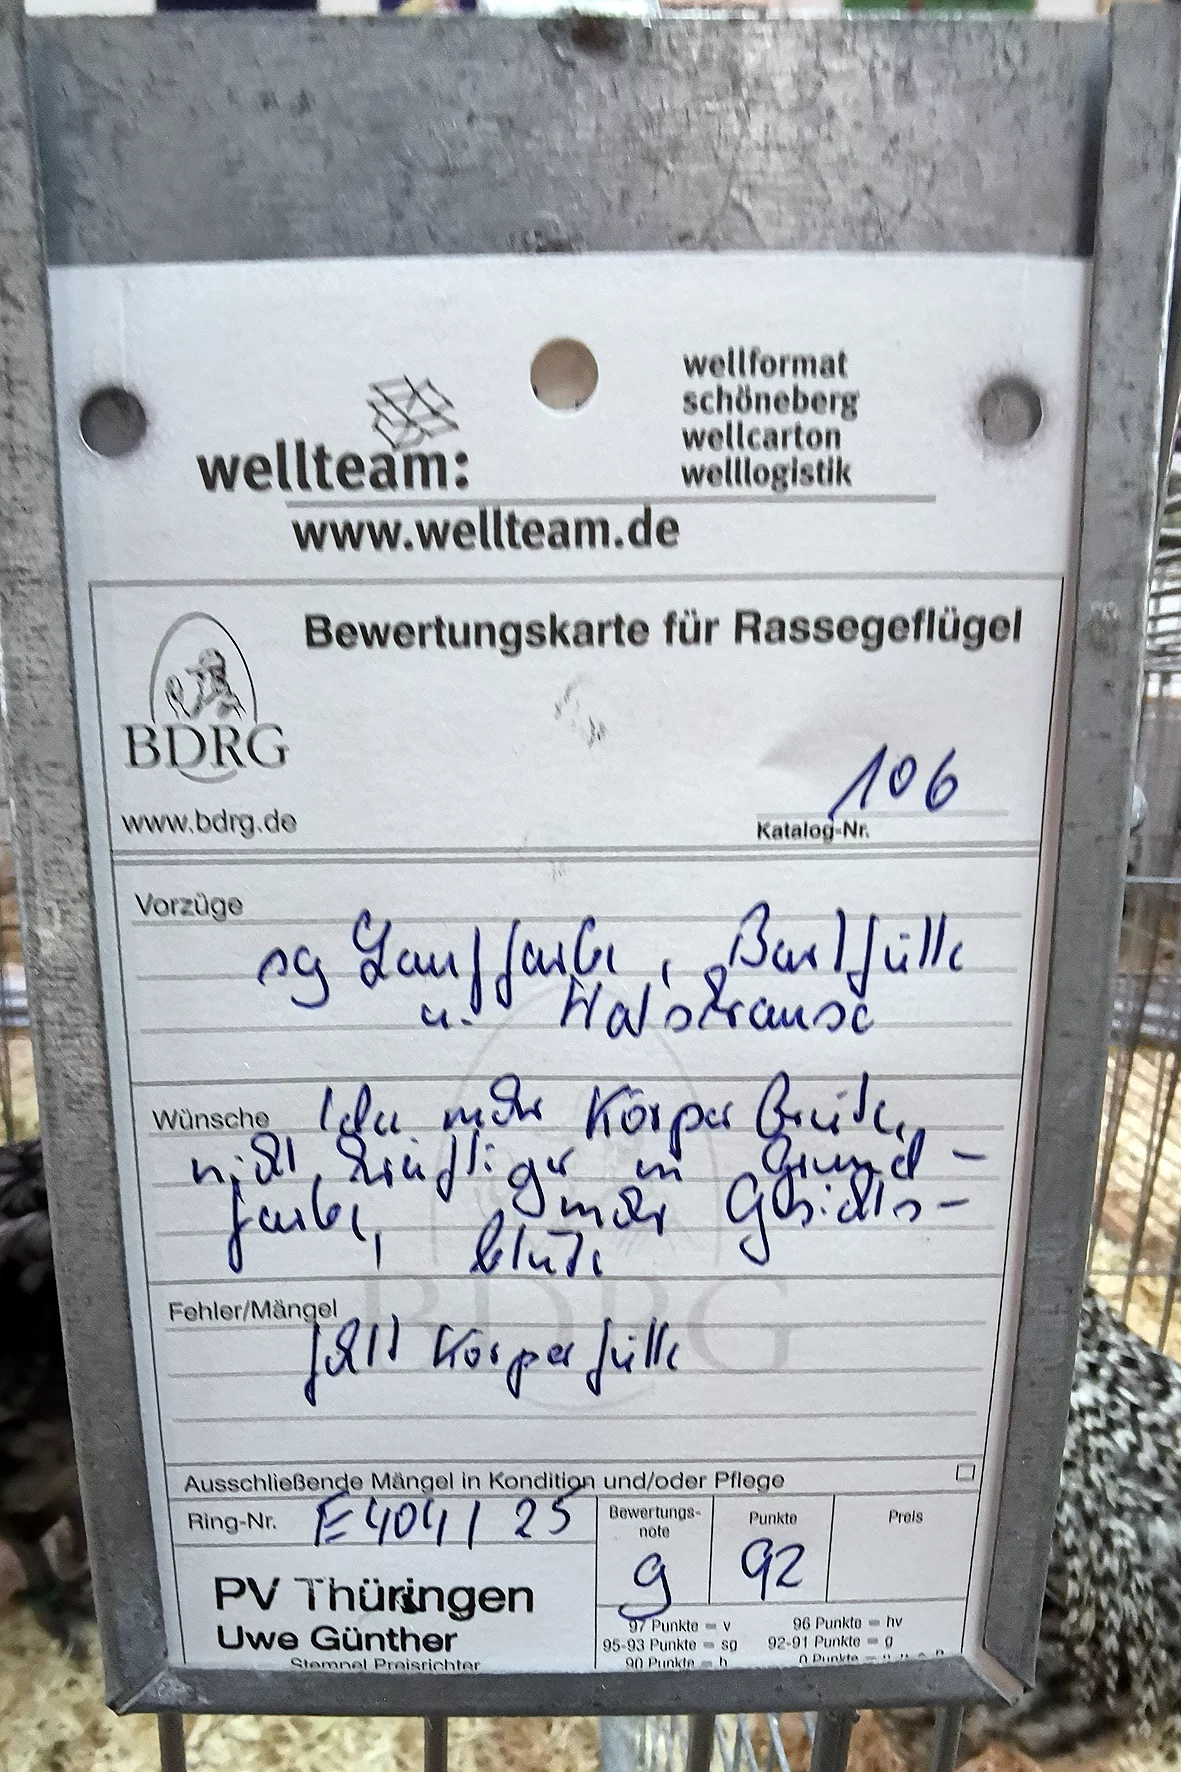 wellteam:
wellformat
schöneberg
wellcarton
welllogistik
www.wellteam.de
Bewertungskarte für Rassegeflügel
BDRG
www.bdrg.de
106
Katalog-Nr.
Vorzüge
sg Lauffarbe, Bartfülle
u. Halskrause
Wünsche mehr Körper
kräftiger in Grund-
farbe, mehr Gesichts-
blüte
Fehler/Mängel
fehlt Körperfülle
Ausschließende Mängel in Kondition und/oder Pflege
Ring-Nr. E404 / 25
Bewertungs-
note
g
Punkte
92
Preis
PV Thüringen
Uwe Günther
Stempel Preisrichter
97 Punkte = v 96 Punkte = hv
95-93 Punkte = sg 92-91 Punkte = g
90 Punkte = b 0 Punkte =